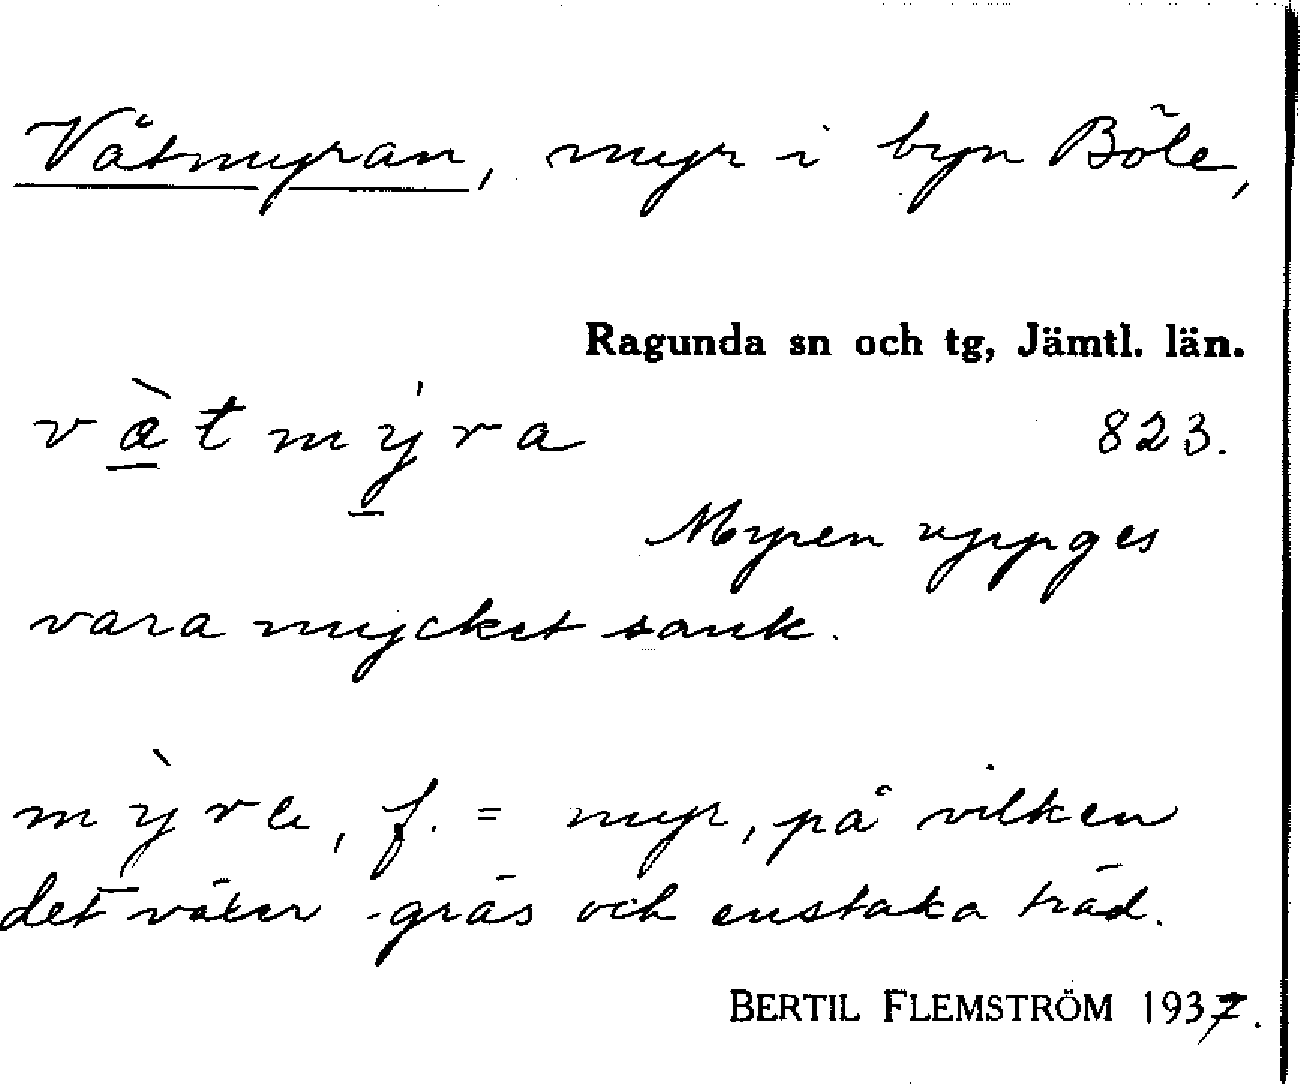 Våtmyran, myr i byn Böle,
Ragunda sn och tg, Jämtl. län.
và̱tmý̱ra 823.
Myren uppges
vara mycket sank.
mỳ̱re, f. = myr, på vilken
det växer gräs och enstaka träd.
BERTIL FLEMSTRÖM 1937.